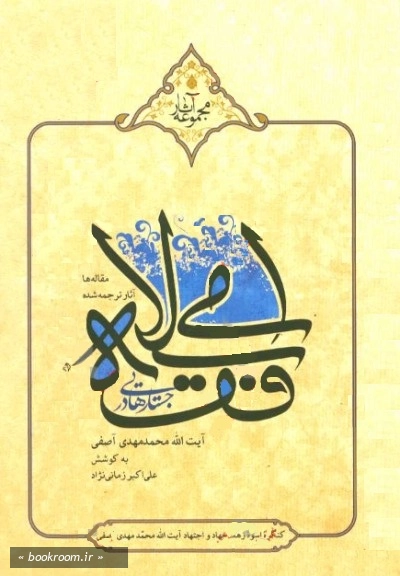 مجموعه آثار
مقاله‌ها
آثار ترجمه‌شده
فقه اسلامی
جستارهایی در
آیت الله محمدمهدی آصفی
به کوشش
علی‌اکبر زمانی‌نژاد
کنگره اسوه زهد، جهاد و اجتهاد آیت الله محمّد مهدی آصفی
« bookroom.ir »